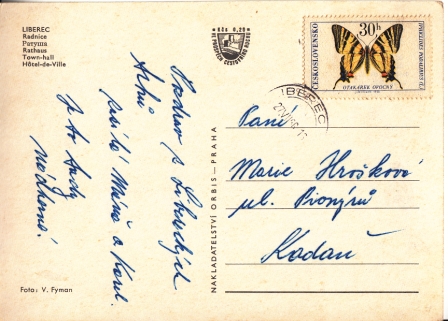 LIBEREC
Radnice
Ратуша
Rathaus
Town-hall
Hôtel-de-Ville
Kčs 0,20
30h
ČESKOSLOVENSKO
OTAKÁREK OVOCNÝ
LIBEREC
Pozdrav z Libereckých
zasílá Máňa a Karel
je to tady
nádherné!
Paní
Marie Hrošková
ul. Pionýrů
Kadaň
NAKLADATELSTVÍ ORBIS — PRAHA
Foto: V. Fyman